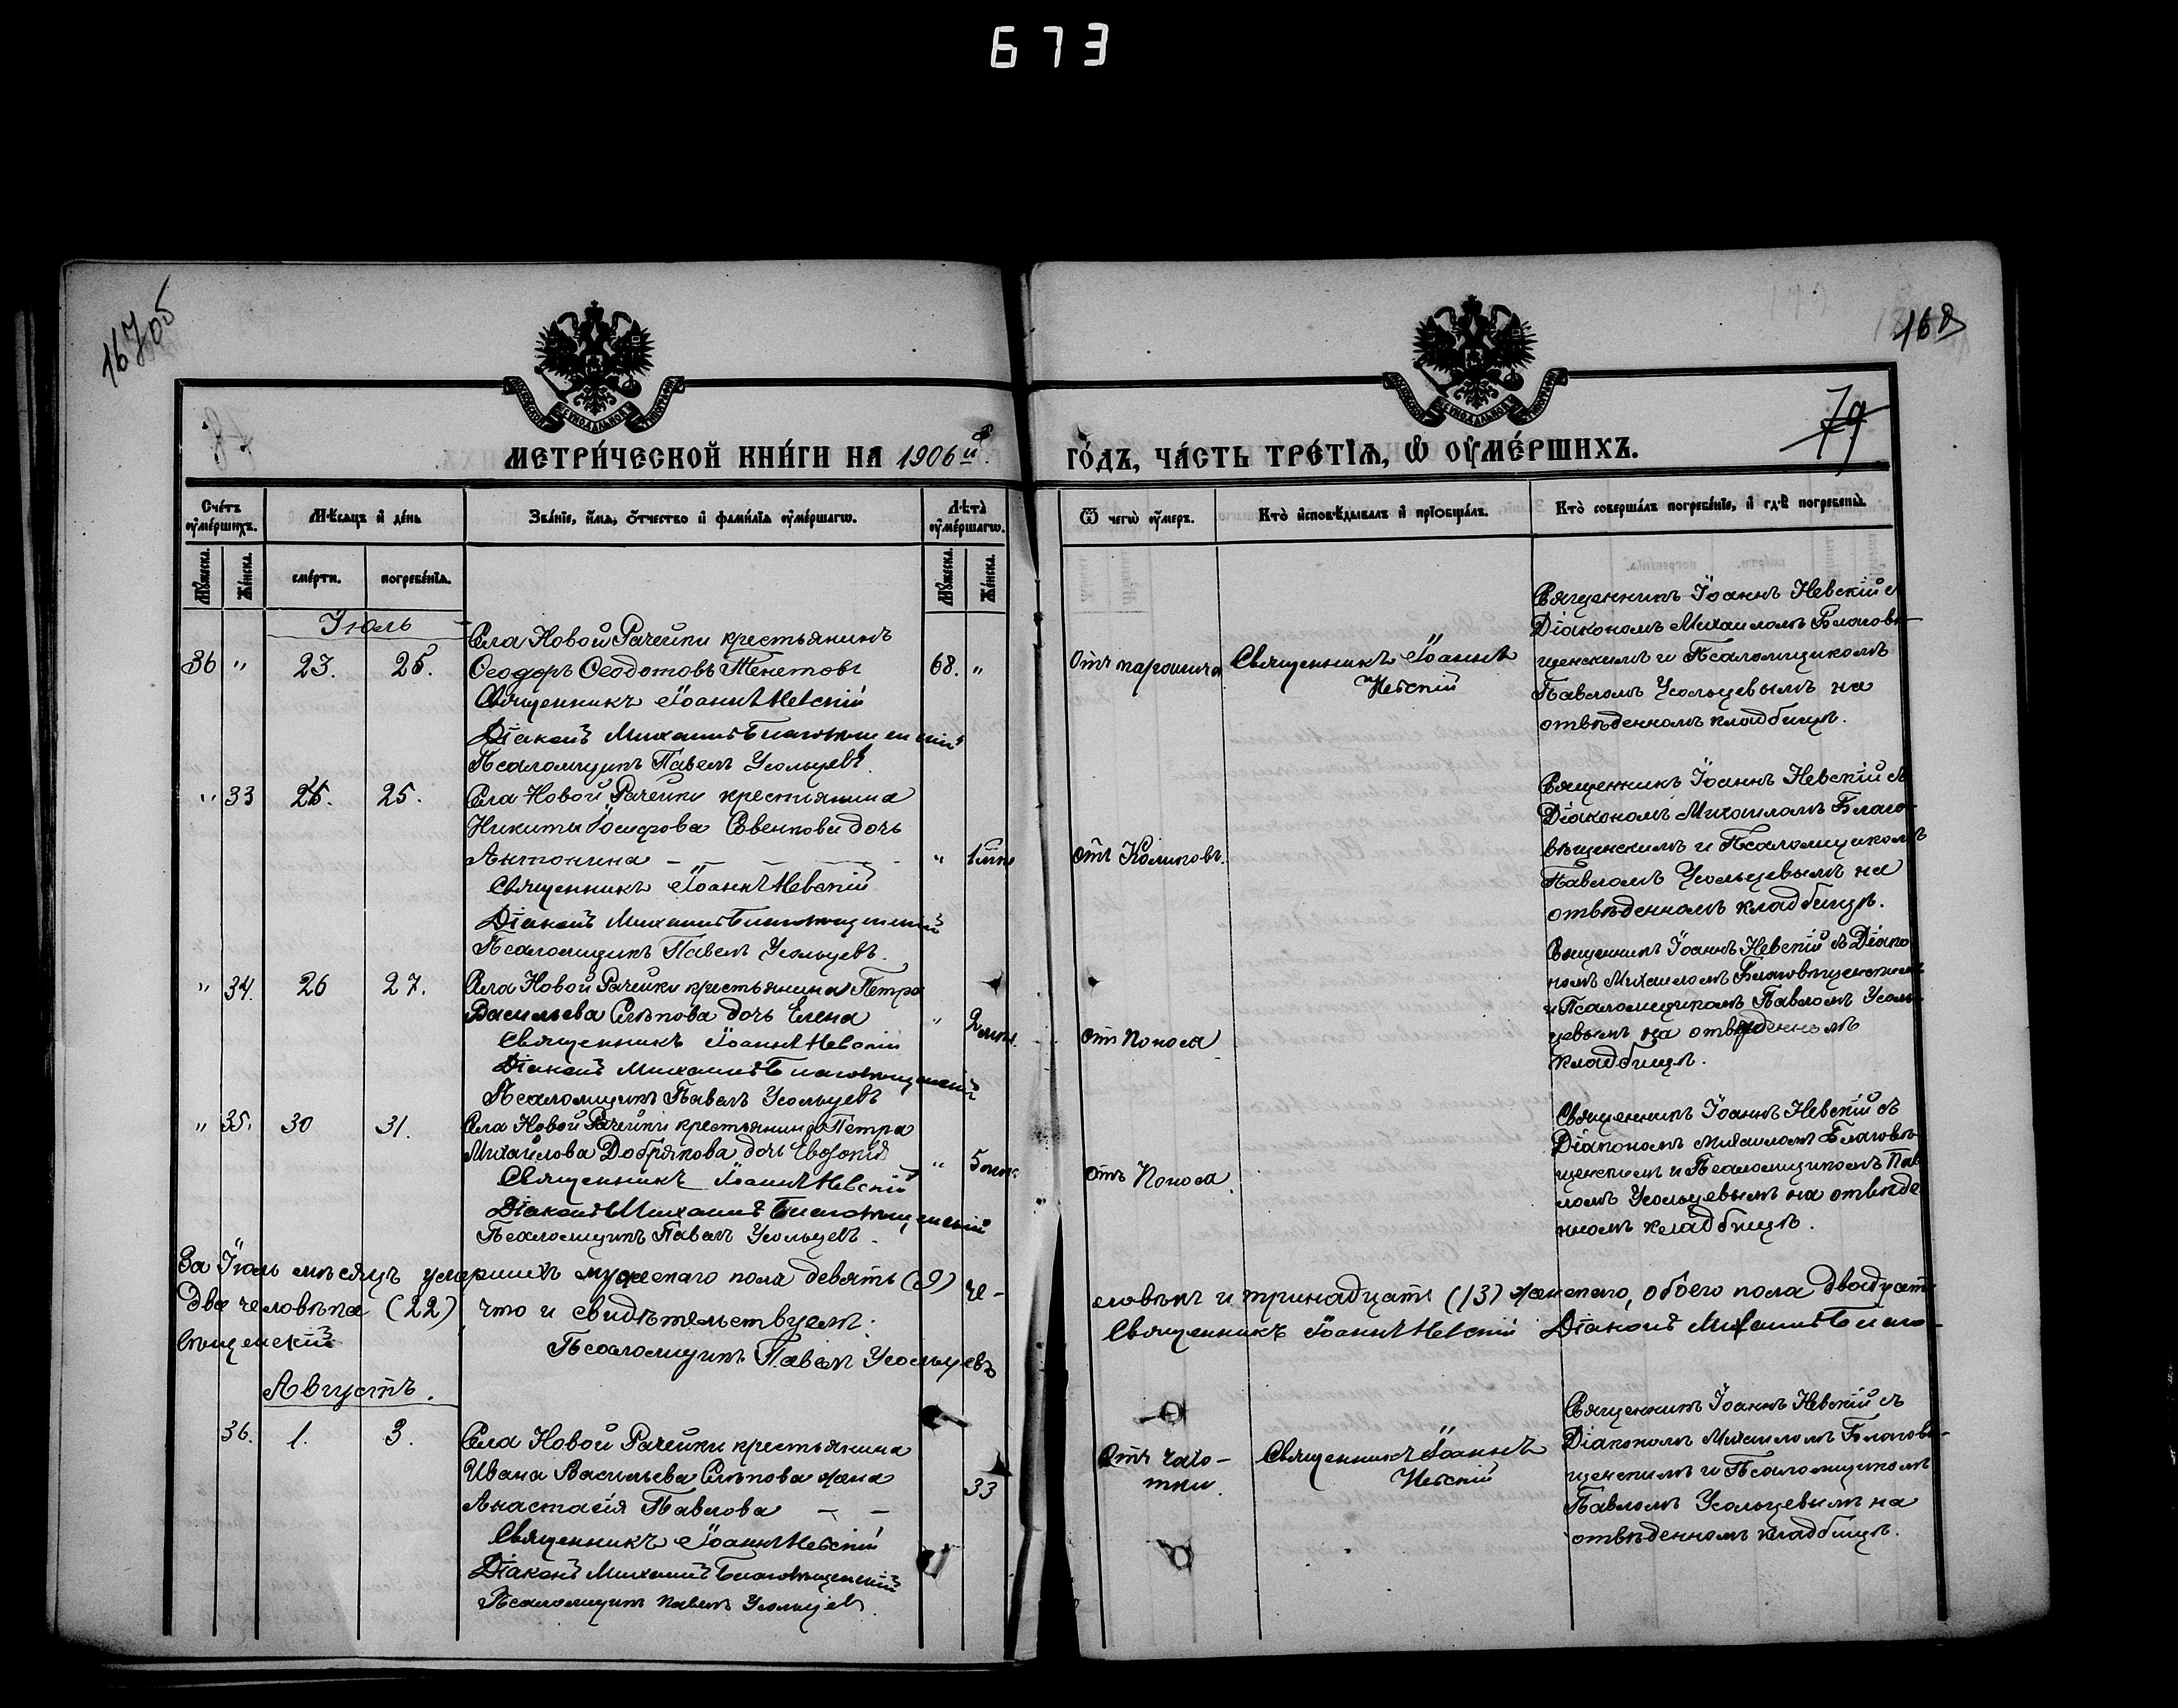 673
167об
168
79
МЕТРИ́ЧЕСКОЙ КНИ́ГИ НА 1906й
ГО́ДЪ, ЧА́СТЬ ТРЕ́ТІѦ, Ѡ ОУМЕ́РШИХЪ.
Сче́тъ оумершихъ.
Мѣсяцъ и де́нь
Зва́ніе, и́мѧ, ѻтчество и фами́лїѧ оуме́ршагѡ.
Лѣта̀ оуме́ршагѡ.
Ѿ чегѡ̀ оумеръ.
Кто̀ исповѣ́дывалъ и прїѡбща́лъ.
Кто̀ соверша́лъ погребе́нїе, и гдѣ̀ погребены̀.
Мꙋжеска.
Же́нска.
сме́рти.
погребе́нїѧ.
Мꙋжеска.
Же́нска.
Іюль
36 " 23. 25.
Села Новой Рачейки крестьянинъ
Ѳеодоръ Ѳеодотовъ Тенетовъ
68. "
Священникъ Іоаннъ Невскій
Діаконъ Михаилъ Благовѣщенскій
Псаломщикъ Павелъ Усольцевъ
Отъ паралича
Священникъ Іоаннъ
Невскій
Священникъ Іоаннъ Невскій съ
Діакономъ Михаиломъ Благовѣ-
щенскимъ и Псаломщикомъ
Павломъ Усольцевымъ на
отвѣденномъ кладбищѣ.
" 33 25.
Села Новой Рачейки крестьянина
Никиты Іосифова Совенкова дочь
Антонина
"
Священникъ Іоаннъ Невскій
Діаконъ Михаилъ Благовѣщенскій
Псаломщикъ Павелъ Усольцевъ.
отъ Коликовъ.
Священникъ Іоаннъ Невскій съ
Діакономъ Михаиломъ Благо-
вѣщенскимъ и Псаломщикомъ
Павломъ Усольцевымъ на
отвѣденномъ кладбищѣ.
" 34. 26 27.
Села Новой Рачейки крестьянина Петра
Васильева Слѣпова дочь Елена
" 2 мѣс.
Священникъ Іоаннъ Невскій
Діаконъ Михаилъ Благовѣщенскій
Псаломщикъ Павелъ Усольцевъ
отъ Поноса
Священникъ Іоаннъ Невскій съ Діако
номъ Михаиломъ Благовѣщенскимъ
и Псаломщикомъ Павломъ Усоль-
цевымъ на отвѣденномъ
кладбищѣ.
" 35. 30 31.
Села Новой Рачейки крестьянина Петра
Михайлова Добрякова дочь Евдокія
" 5 мѣс.
Священникъ Іоаннъ Невскій
Діаконъ Михаилъ Благовѣщенскій
Псаломщикъ Павелъ Усольцевъ.
отъ Поноса.
Священникъ Іоаннъ Невскій съ
Діакономъ Михаиломъ Благовѣ
щенскимъ и Псаломщикомъ Пав
ломъ Усольцевымъ на отвѣде
нномъ кладбищѣ.
За Іюль мѣсяцъ умершихъ мужескаго пола девять (9) че-
ловѣкъ и тринадцать (13) женскаго, обоего пола двадцать
два человѣка (22) что и свидѣтельствуемъ:
Священникъ Іоаннъ Невскій Діаконъ Михаилъ Благо-
вѣщенскій
Псаломщикъ Павелъ Усольцевъ
Августъ.
36. 1. 3.
Села Новой Рачейки крестьянина
Ивана Васильева Слѣпова жена
Анастасія Павлова
33
Священникъ Іоаннъ Невскій
Діаконъ Михаилъ Благовѣщенскій
Псаломщикъ Павелъ Усольцевъ.
Отъ чахо-
тки.
Священникъ Іоаннъ
Невскій
Священникъ Іоаннъ Невскій съ
Діакономъ Михаиломъ Благовѣ-
щенскимъ и Псаломщикомъ
Павломъ Усольцевымъ на
отвѣденномъ кладбищѣ.